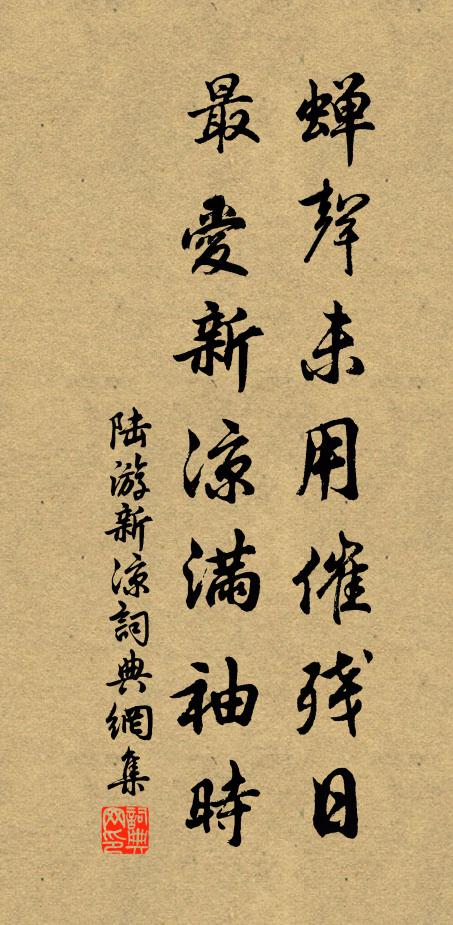 蝉聲未用催残日
最愛新涼满袖時
陆游新涼詞典網集
詞典网印